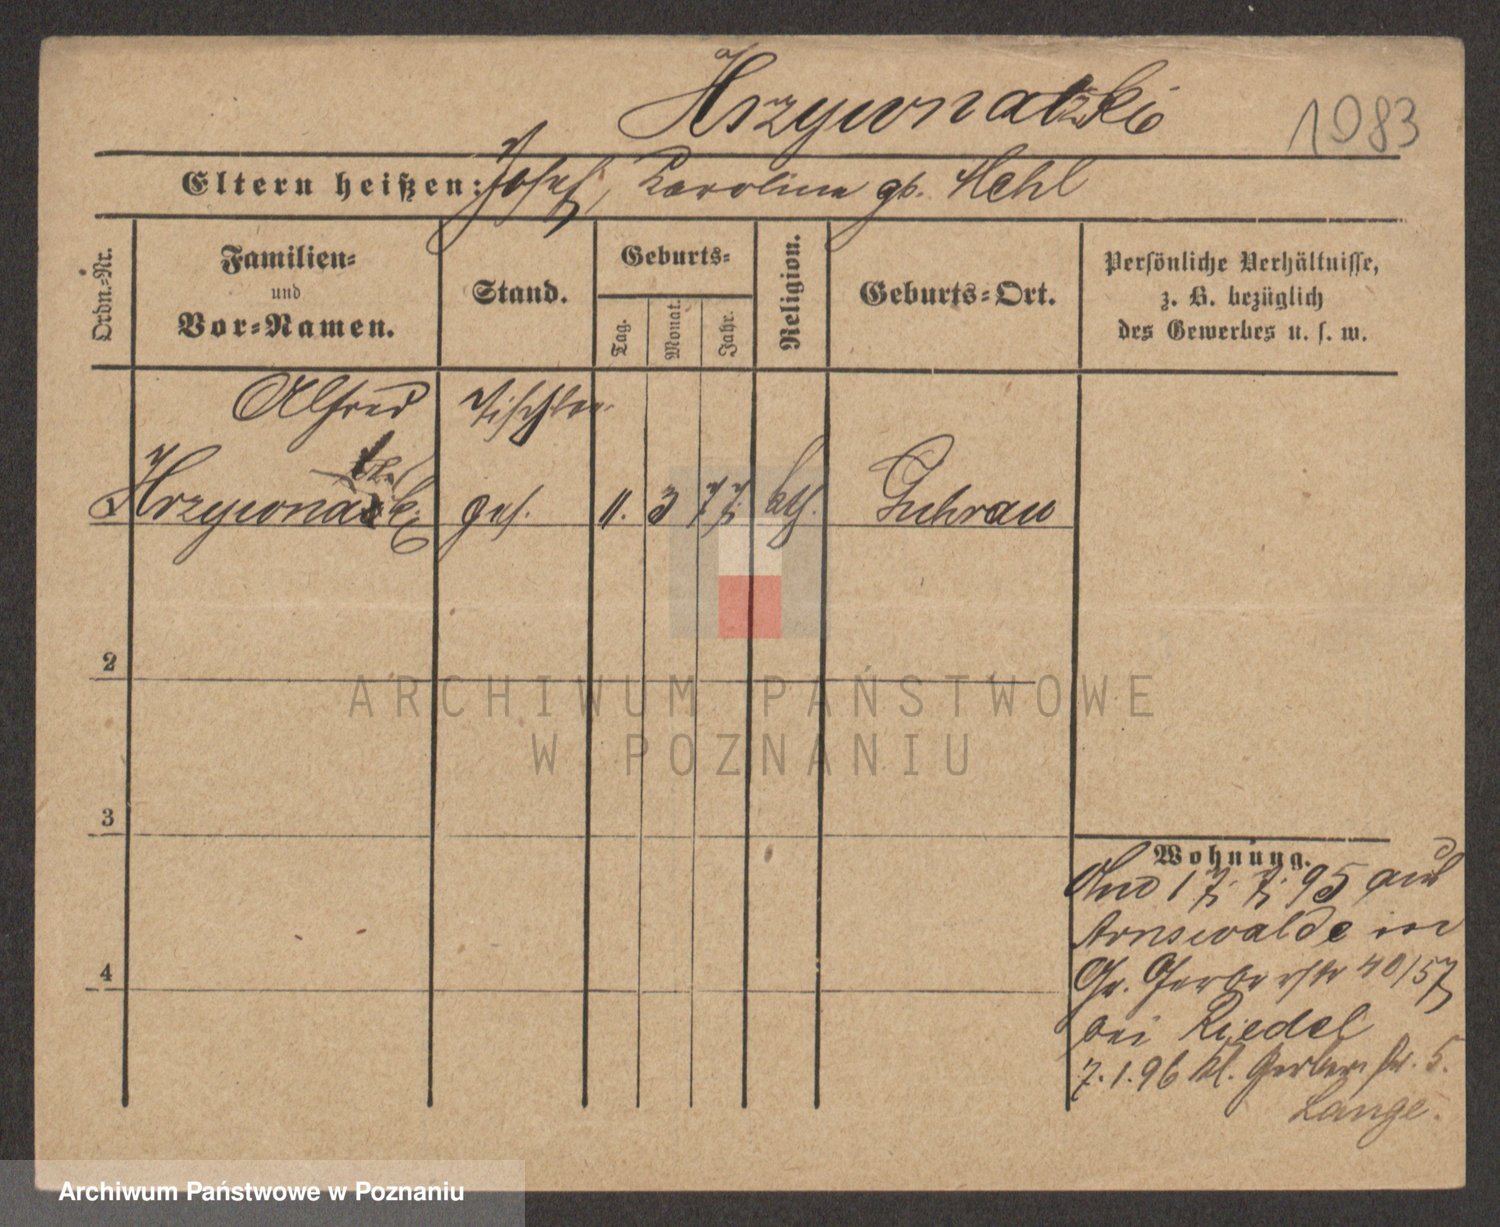 Krzywnatzki
1983
Eltern heißen: Josef, Karoline gb. Mehl
Ordn.-Nr.
Familien-
und
Vor-Namen.
Stand.
Geburts-
Tag.
Monat.
Jahr.
Religion.
Geburts-Ort.
Persönliche Verhältnisse,
z. B. bezüglich
des Gewerbes u. s. w.
Alfred Tischler
ges. 11. 3 77. kth. Guhrau
2
ARCHIWUM PAŃSTWOWE
W POZNANIU
3
Wohnung.
17. 7. 95 aus
Arnswalde
Gr. Gerberstr 40/57
bei Riedel
7. 1. 96 Kl. Gerberstr. 5.
Lange.
4
Archiwum Państwowe w Poznaniu